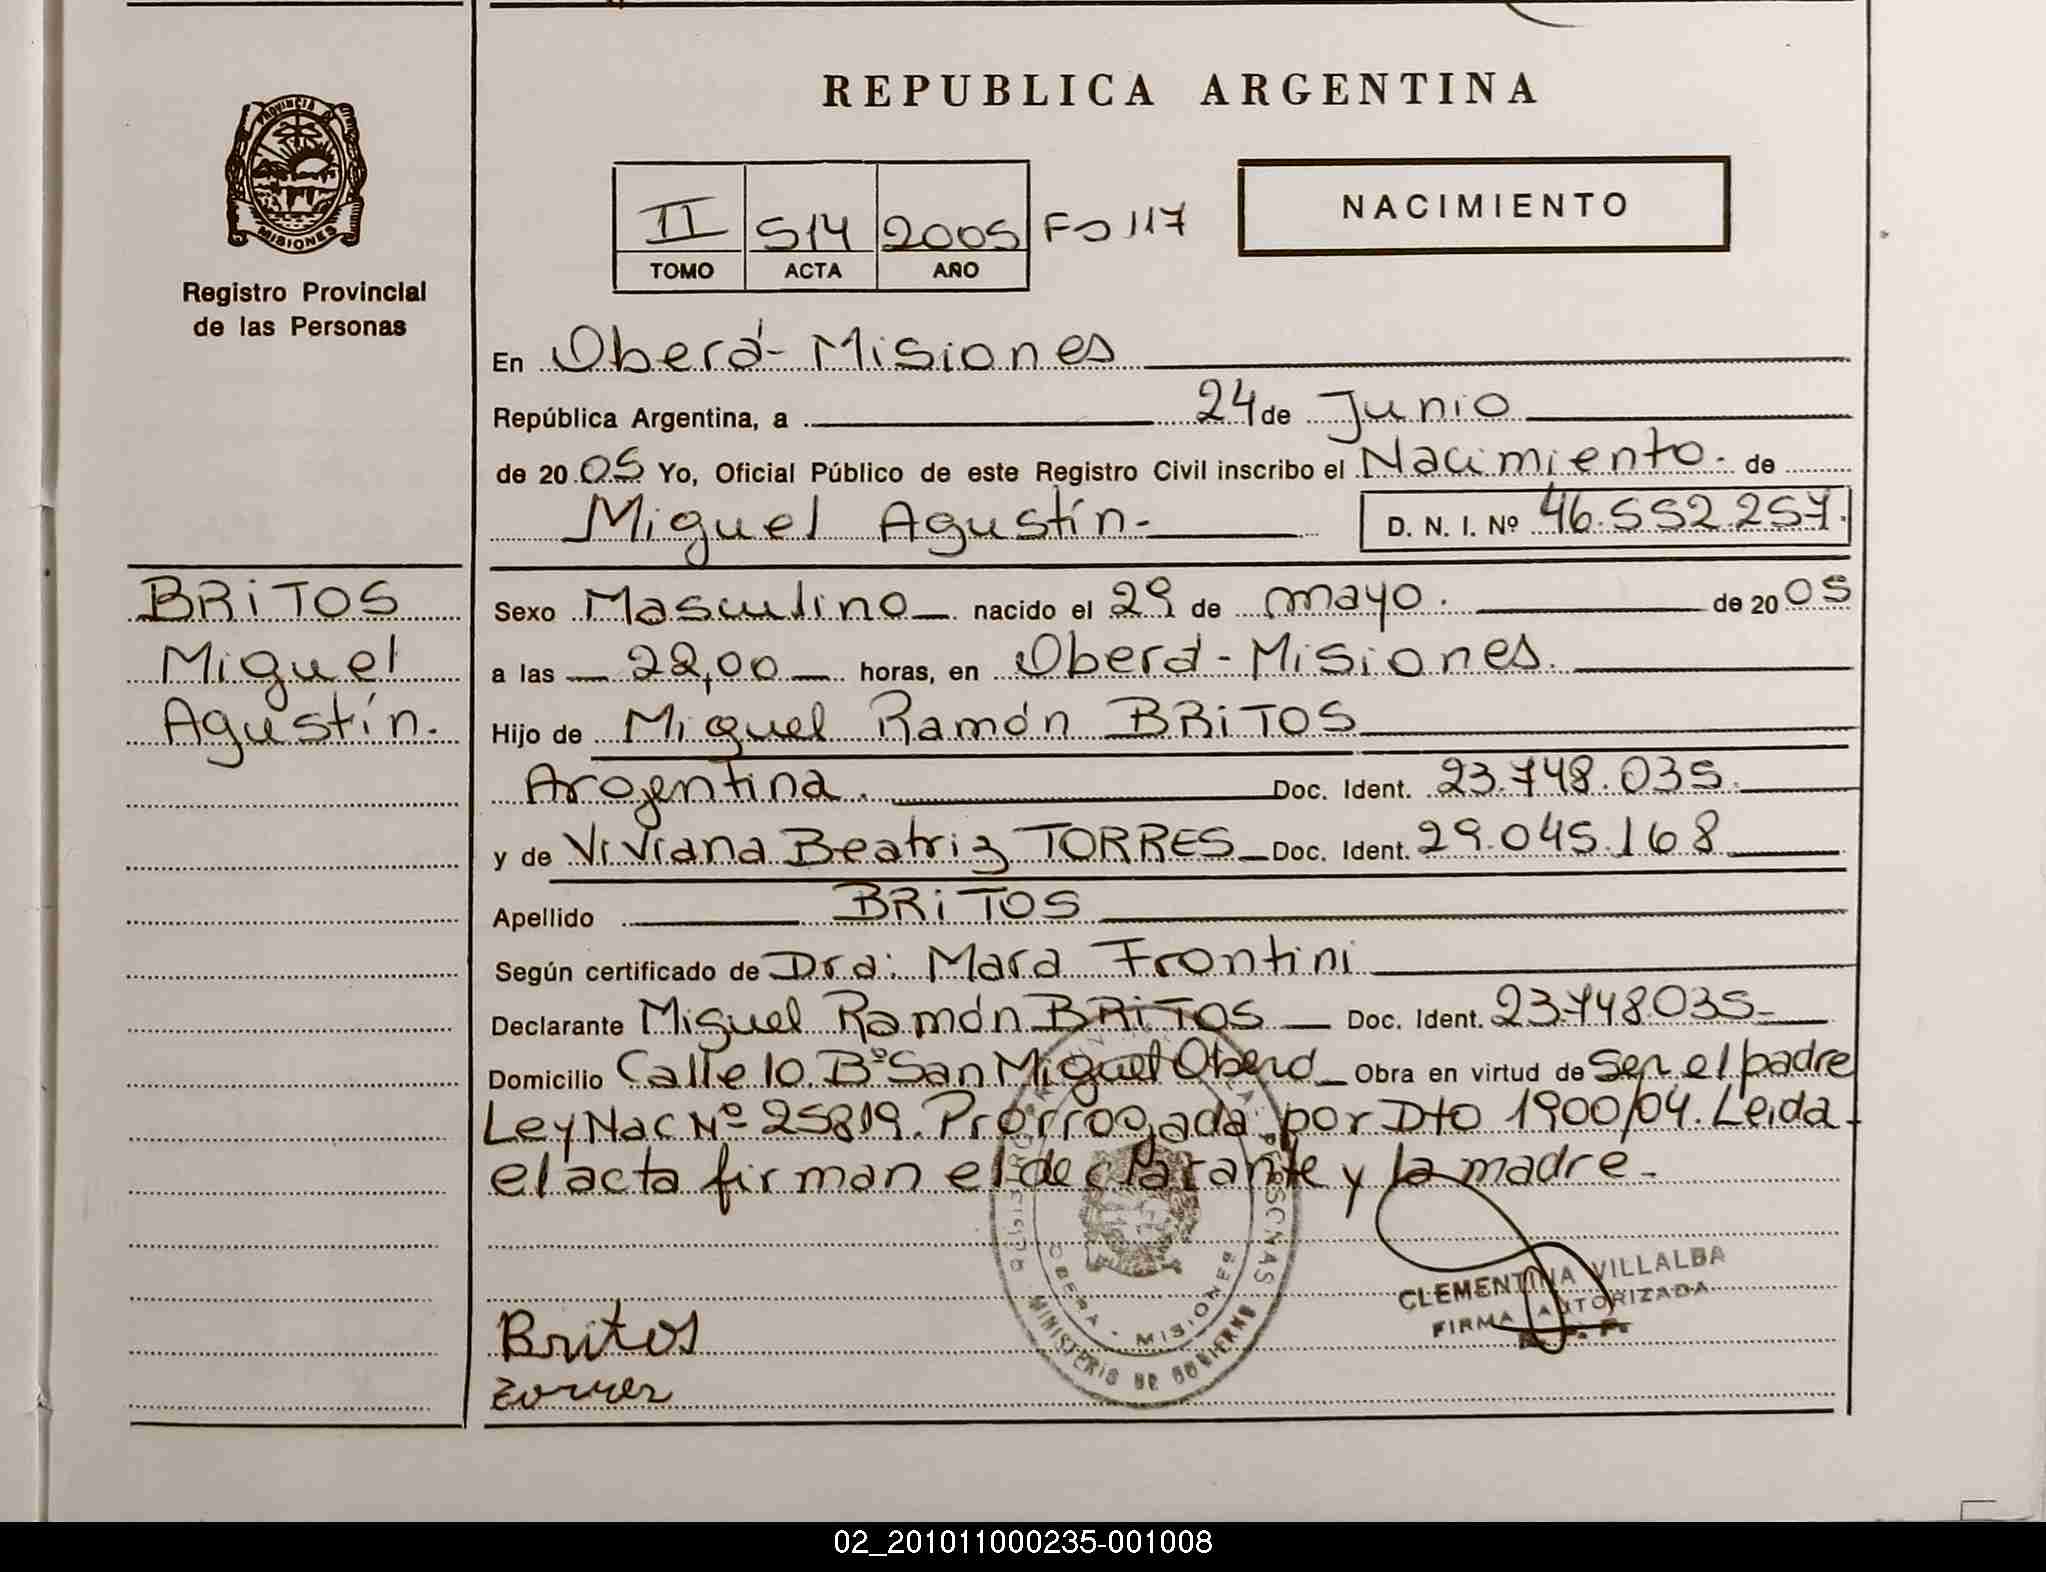 REPUBLICA ARGENTINA
PROVINCIA
MISIONES
Registro Provincial
de las Personas
II 514 2005 Fo 117
TOMO ACTA AÑO
NACIMIENTO
En Oberá - Misiones
República Argentina, a 24 de Junio
de 2005 Yo, Oficial Público de este Registro Civil inscribo el Nacimiento. de
Miguel Agustín.- D. N. I. Nº 46.552.257.
BRiTOS
Miguel
Agustín.
Sexo Masculino nacido el 29 de mayo. de 2005
a las 22,00 horas, en Oberá - Misiones.
Hijo de Miguel Ramón BRiTOS
Argentina. Doc. Ident. 23.748.035.
y de Viviana Beatriz TORRES Doc. Ident. 29.045.168
Apellido BRiTOS
Según certificado de Dra: Mara Frontini
Declarante Miguel Ramón BRiTOS Doc. Ident. 23748035-
Domicilio Calle 10 Bº San Miguel Oberá Obra en virtud de Ser el padre
Ley Nac Nº 25819. Prorrogada por Dto 1900/04. Leida
el acta firman el declarante y la madre-
OBERA - MISIONES
MINISTERIO DE GOBIERNO
CLEMENTINA VILLALBA
FIRMA AUTORIZADA
Britos
Torres
02_201011000235-001008